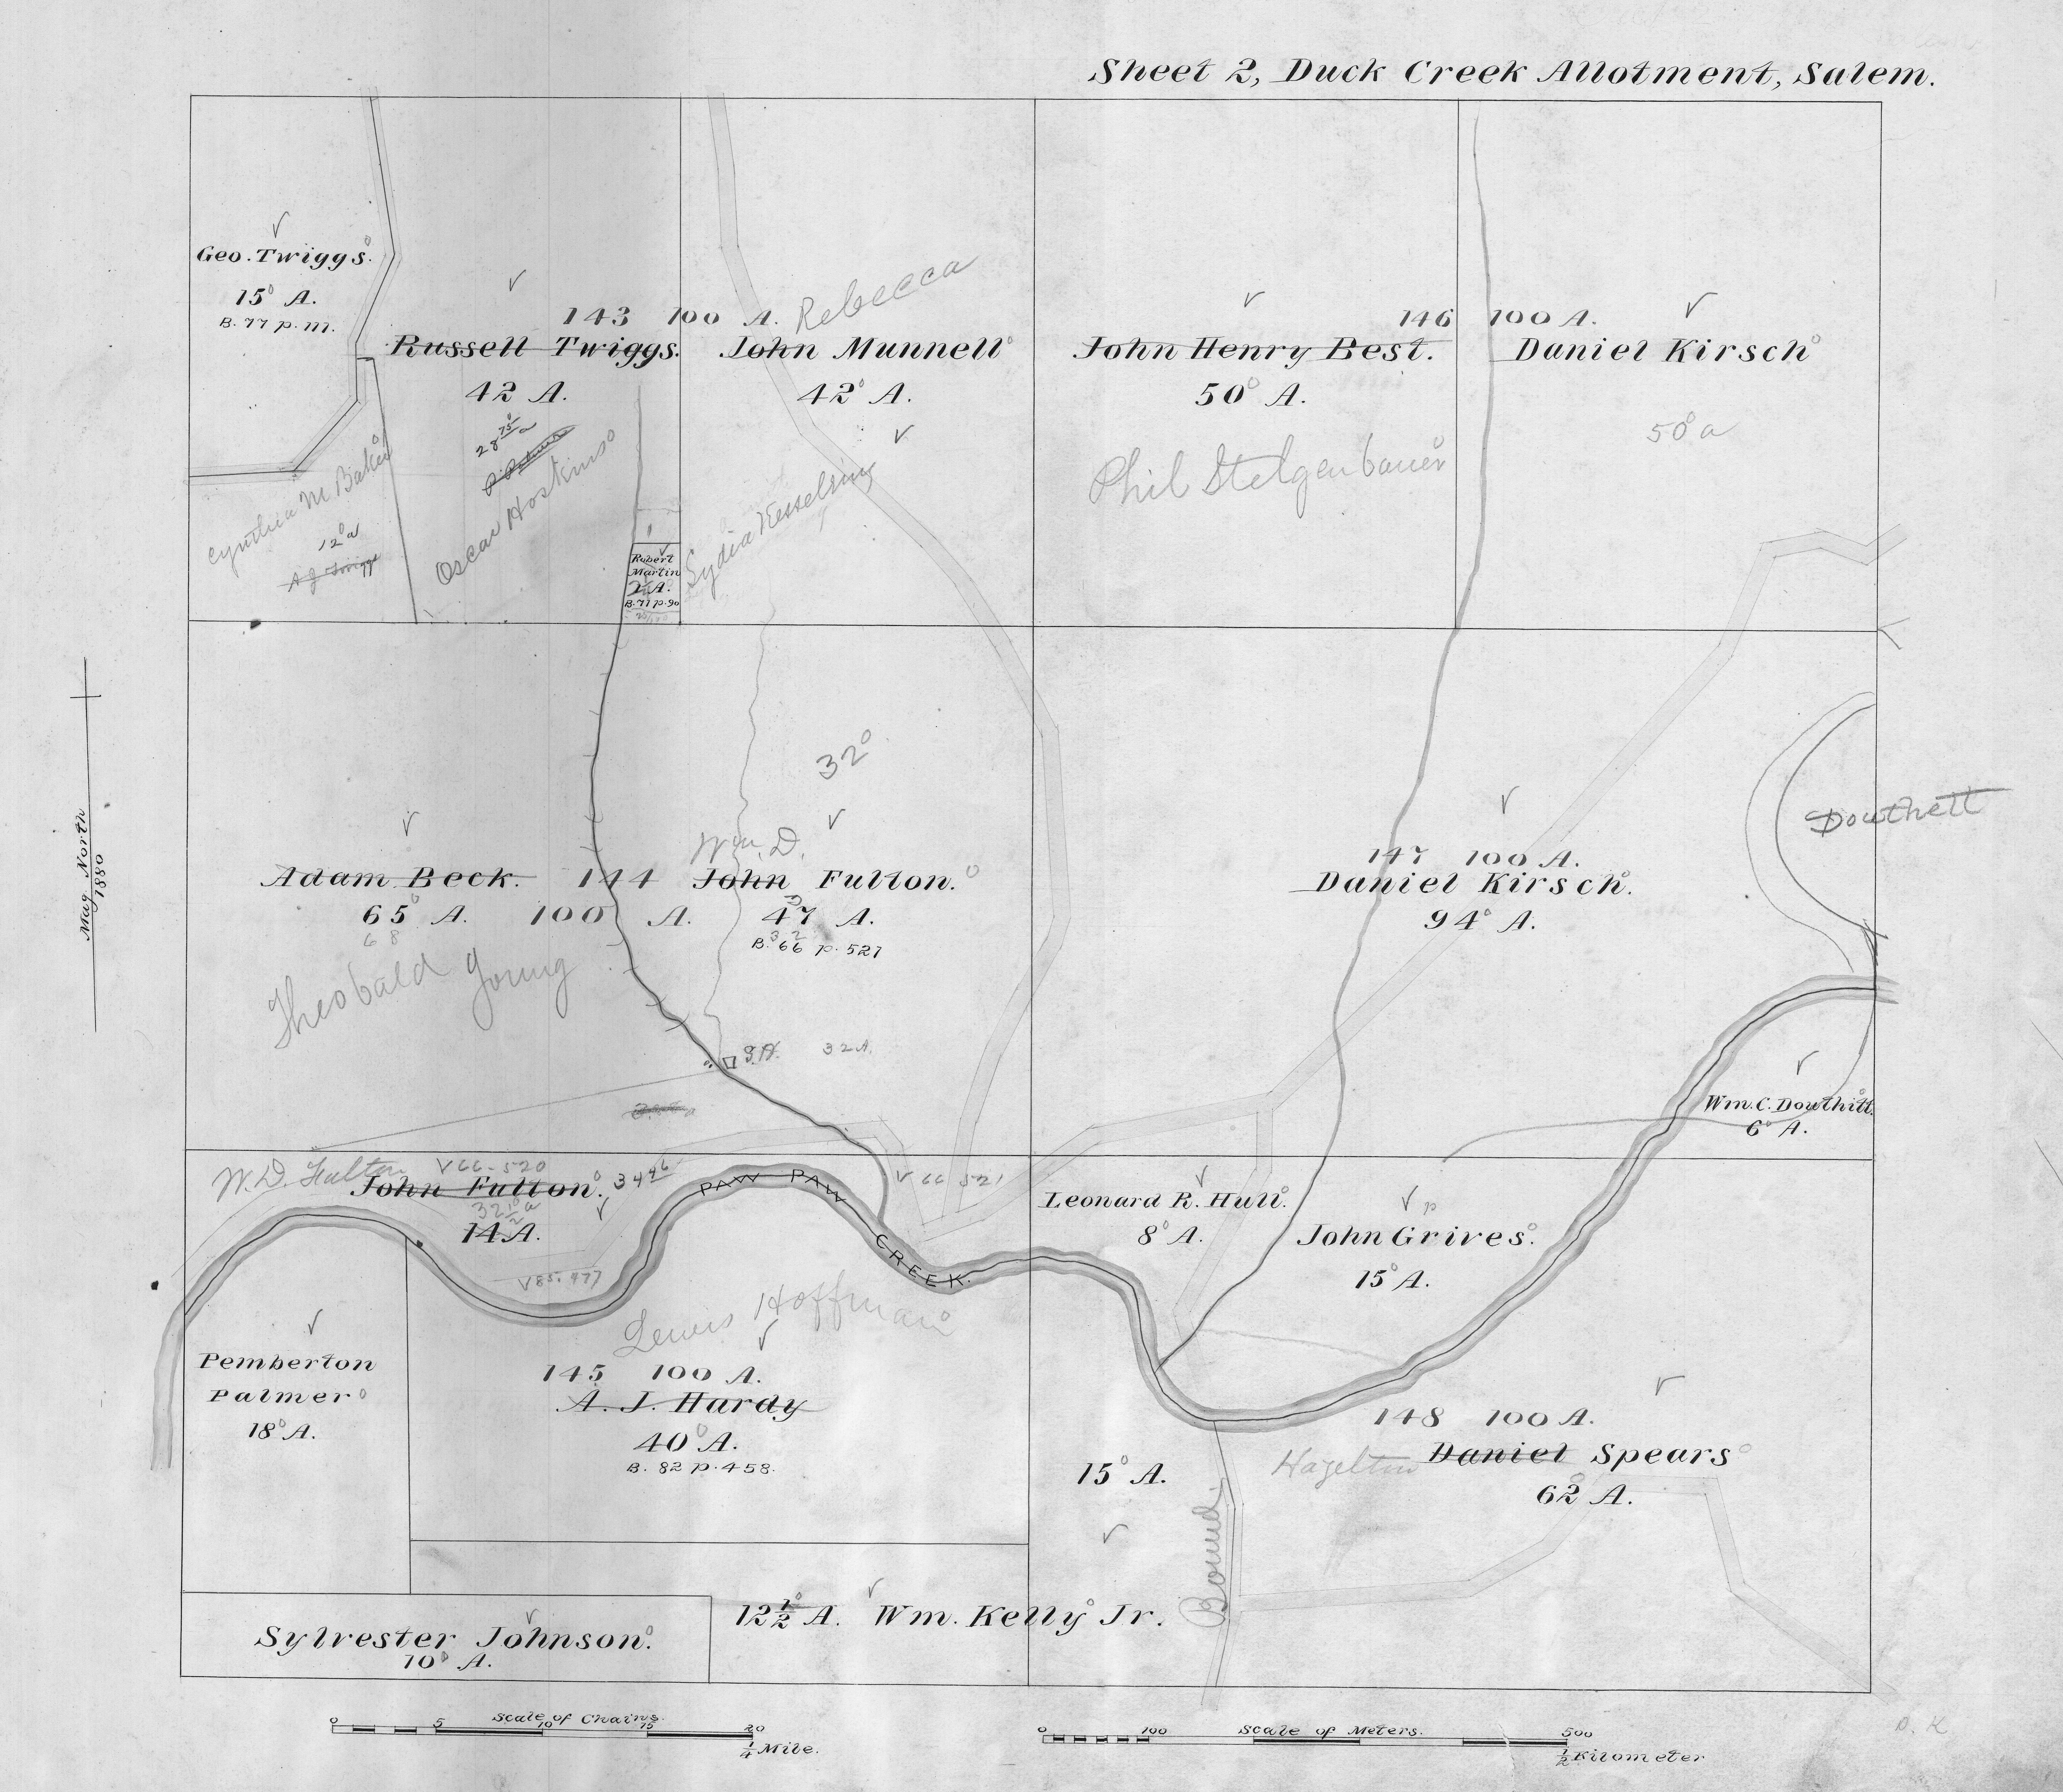 Sheet 2, Duck Creek Allotment, Salem.
Geo. Twiggs.
15 A.
B. 77 p. 111.
143 100 A.
Russell Twiggs.
42 A.
28 75 a
Oscar Hoskins
Cynthia M. Baker
12 a
A J Twiggs
Robert
Martin
2 A.
B. 71 p. 90
Rebecca
John Munnell
42 A.
Lydia Kesselring
146 100 A.
John Henry Best.
50 A.
Phil Stelgenbauer
Daniel Kirsch
50 a
Mag. North
1880
Adam Beck.
65 A.
68
Theobald Young
144
100 A.
32
Wm. D.
John Fulton.
47 A.
32
B. 66 p. 521
32 A.
147 100 A.
Daniel Kirsch.
94 A.
Douthett
Wm. C. Douthitt.
6 A.
W. D. Fulton
V 66-520
John Fulton. 34 96
32 1/2 a
14 A.
V 85. 477
V 66 521
PAW PAW CREEK.
Leonard R. Hull.
8 A.
John Grives.
15 A.
Pemberton
Palmer
18 A.
Lewis Hoffman
145 100 A.
A. J. Hardy
40 A.
B. 82 p. 458.
148 100 A.
Hazelton Daniel Spears
62 A.
15 A.
Bound.
Sylvester Johnson.
10 A.
12 1/2 A. Wm. Kelly Jr.
Scale of Chains.
0 5 10 15 20
1/4 Mile.
Scale of Meters.
0 100 500
1/2 Kilometer
O. K